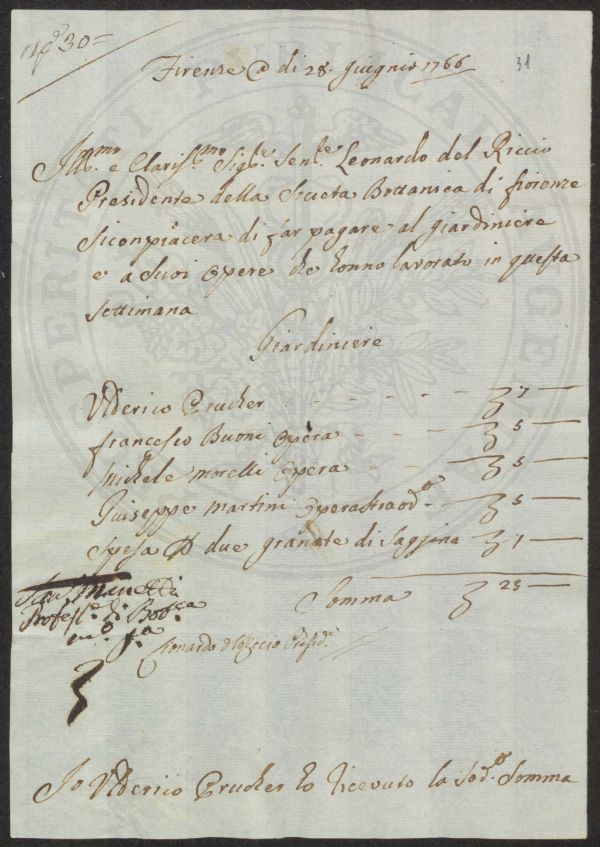 N° 30=
Firenze @ di 28 giugnio 1766
31
Ill.mo e Clariss.mo Sig.re Sen.le Leonardo del Riccio
Presidente della Sucieta Bottanica di fiorenze
Siconpiacera di far pagare al giardiniere
e a Suoi opere che honno lavorato in questa
settimana
Giardiniere
Uldericо Prucker - - - - 7 —
francesco Buoni opera - - - 5 —
Michele morelli opera - - 5 —
Guiseppe martini opera straod.o - 5 —
Spesa P due granate di Saggina 1 —
Somma 23 —
Sav. Manetti
Profess.e di Bot.ca
m.o p.a
Leonardo del Riccio Presid.e
Io Ulderico Prucker ho ricevuto la Sod.a Somma